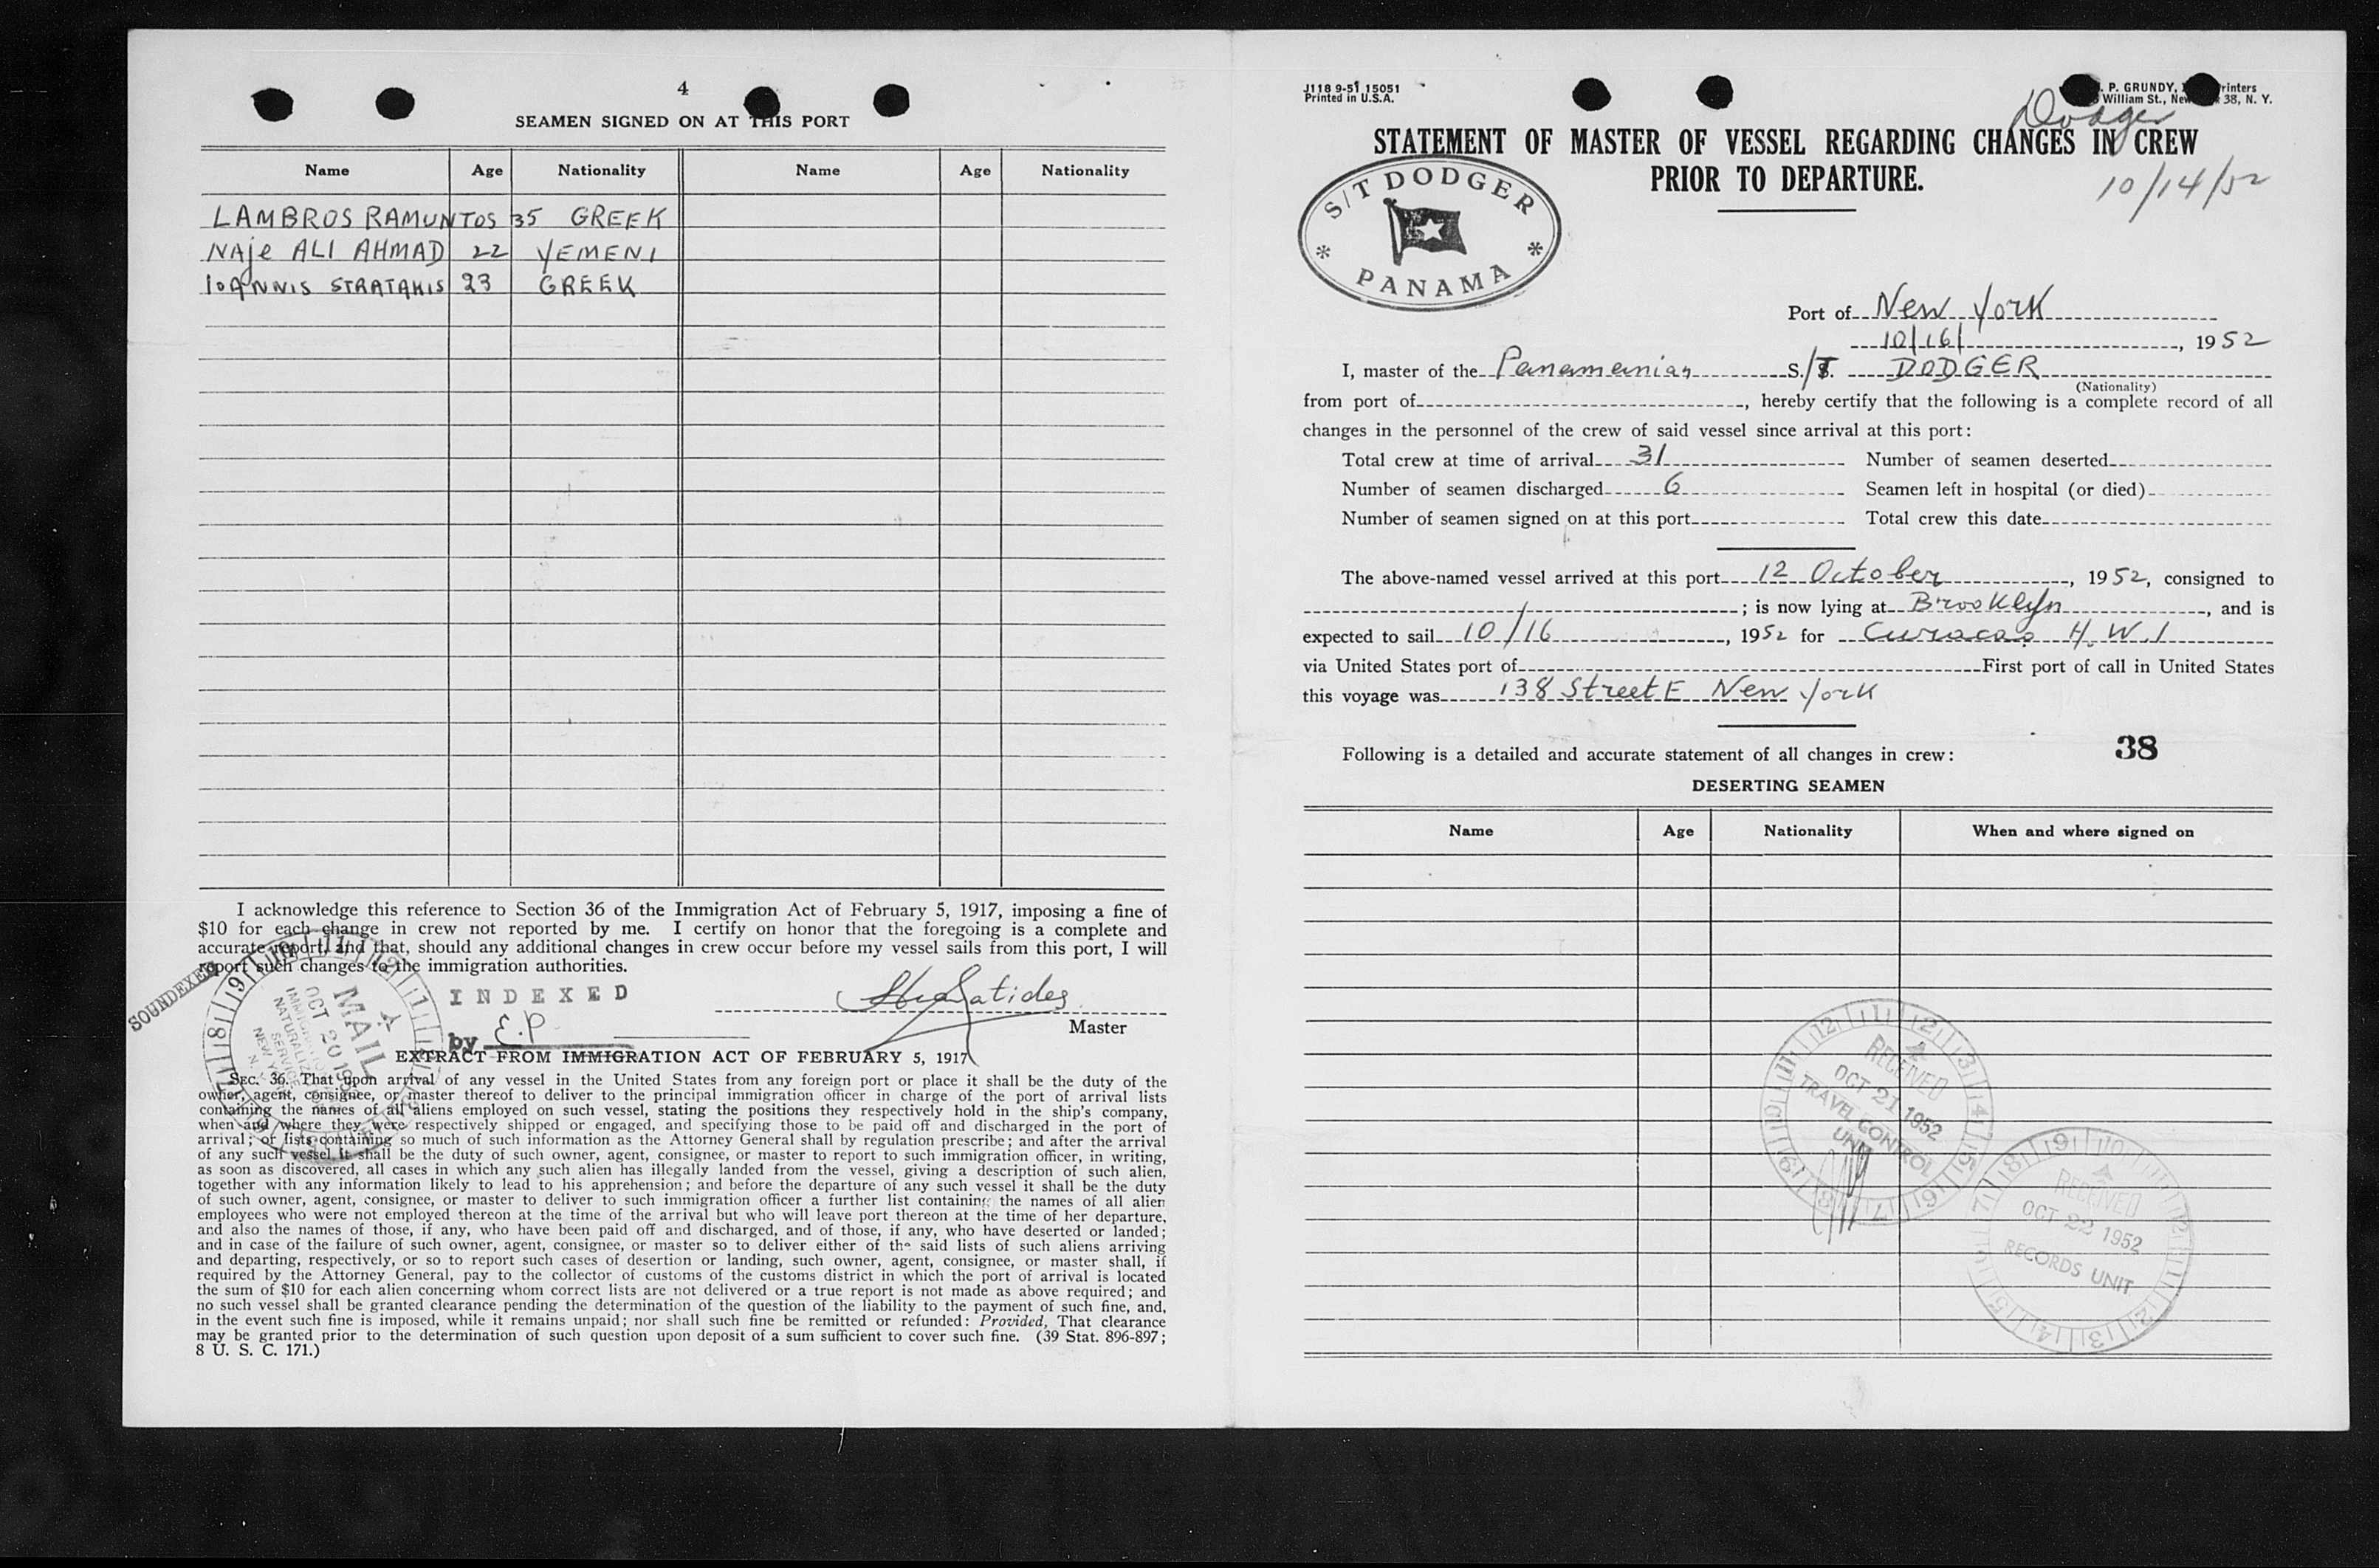 4
SEAMEN SIGNED ON AT THIS PORT
Name Age Nationality Name Age Nationality
LAMBROS RAMUNTOS 35 GREEK
NAJe ALI AHMAD 22 YEMENI
IOANNIS STRATAKIS 23 GREEK
I acknowledge this reference to Section 36 of the Immigration Act of February 5, 1917, imposing a fine of
$10 for each change in crew not reported by me. I certify on honor that the foregoing is a complete and
accurate report, and that, should any additional changes in crew occur before my vessel sails from this port, I will
report such changes to the immigration authorities.
SOUNDEXED
MAIL
OCT 20 195
IMMIGRATION
NATURALIZ
SERVICE
NEW Y
N. Y.
INDEXED
by E.P
Master
EXTRACT FROM IMMIGRATION ACT OF FEBRUARY 5, 1917
SEC. 36. That upon arrival of any vessel in the United States from any foreign port or place it shall be the duty of the
owner, agent, consignee, or master thereof to deliver to the principal immigration officer in charge of the port of arrival lists
containing the names of all aliens employed on such vessel, stating the positions they respectively hold in the ship's company,
when and where they were respectively shipped or engaged, and specifying those to be paid off and discharged in the port of
arrival; or lists containing so much of such information as the Attorney General shall by regulation prescribe; and after the arrival
of any such vessel it shall be the duty of such owner, agent, consignee, or master to report to such immigration officer, in writing,
as soon as discovered, all cases in which any such alien has illegally landed from the vessel, giving a description of such alien,
together with any information likely to lead to his apprehension; and before the departure of any such vessel it shall be the duty
of such owner, agent, consignee, or master to deliver to such immigration officer a further list containing the names of all alien
employees who were not employed thereon at the time of the arrival but who will leave port thereon at the time of her departure,
and also the names of those, if any, who have been paid off and discharged, and of those, if any, who have deserted or landed;
and in case of the failure of such owner, agent, consignee, or master so to deliver either of the said lists of such aliens arriving
and departing, respectively, or so to report such cases of desertion or landing, such owner, agent, consignee, or master shall, if
required by the Attorney General, pay to the collector of customs of the customs district in which the port of arrival is located
the sum of $10 for each alien concerning whom correct lists are not delivered or a true report is not made as above required; and
no such vessel shall be granted clearance pending the determination of the question of the liability to the payment of such fine, and,
in the event such fine is imposed, while it remains unpaid; nor shall such fine be remitted or refunded: Provided, That clearance
may be granted prior to the determination of such question upon deposit of a sum sufficient to cover such fine. (39 Stat. 896-897;
8 U. S. C. 171.)
J118 9-51 15051
Printed in U.S.A.
P. GRUNDY, rinters
William St., New 38, N. Y.
Dodger
10/14/52
STATEMENT OF MASTER OF VESSEL REGARDING CHANGES IN CREW
PRIOR TO DEPARTURE.
S/T DODGER
* *
PANAMA
Port of New York
10/16/, 1952
I, master of the Panamanian S./T. DODGER
(Nationality)
from port of, hereby certify that the following is a complete record of all
changes in the personnel of the crew of said vessel since arrival at this port:
Total crew at time of arrival 31 Number of seamen deserted
Number of seamen discharged 6 Seamen left in hospital (or died)
Number of seamen signed on at this port Total crew this date
The above-named vessel arrived at this port 12 October, 1952, consigned to
; is now lying at Brooklyn, and is
expected to sail 10/16, 1952 for Curacao H.W.I
via United States port of First port of call in United States
this voyage was 138 Street E New York
Following is a detailed and accurate statement of all changes in crew: 38
DESERTING SEAMEN
Name Age Nationality When and where signed on
RECEIVED
OCT 21 1952
TRAVEL CONTROL
UNIT
RECEIVED
OCT 22 1952
RECORDS UNIT